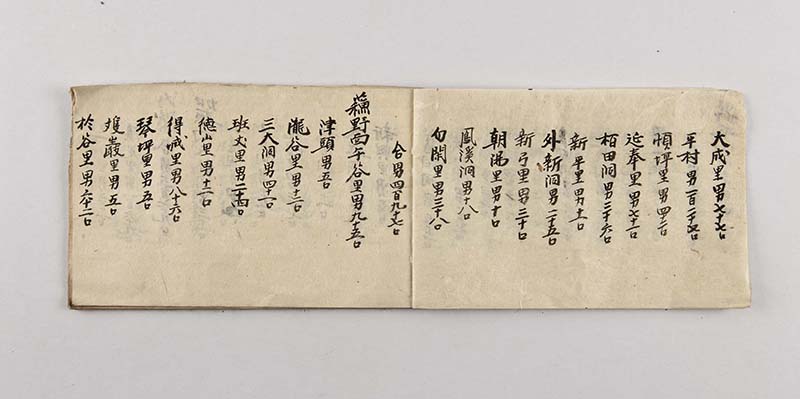 大成里男七十七口
平村男一百二十四口
順坪里男四十二口
延奉里男七十一口
栢田洞男二十六口
新平里男十一口
外新洞男二十五口
新弓里男三十口
朝陽里男十口
鳳溪洞男十八口
白閑里男三十八口
合男四百九十七口
蘓野面午谷里男九十五口
津頭男五口
瀧谷里男十二口
三大洞男四十一口
班文里男二十四口
德山里男十二口
得城里男八十六口
琴坪里男五口
巖里男五口
於谷里男六十二口